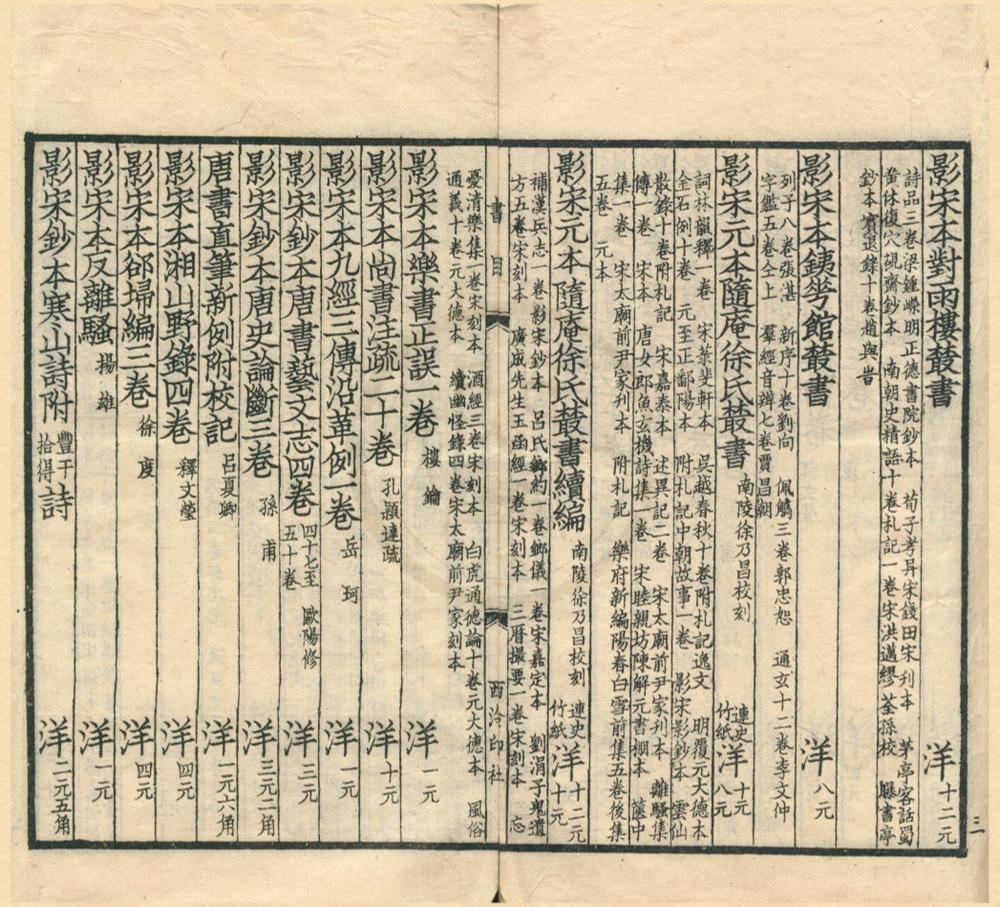 影宋本對雨樓叢書　洋十二元
詩品三卷梁鍾嶸明正德書院鈔本　荀子考异宋錢田宋刋本　茅亭客話蜀
黄休復穴硯齋鈔本　南朝史精語十卷札記一卷宋洪邁繆荃孫校　曝書亭
鈔本賓退錄十卷趙與旹
影宋本銕琴館叢書　洋八元
列子八卷張湛　新序十卷劉向　佩觿三卷郭忠恕　通玄十二卷李文仲
字鑑五卷仝上　羣經音辨七卷賈昌朝
影宋元本隨庵徐氏叢書　南陵徐乃昌校刻　連史竹紙洋十元八元
詞林韻釋一卷　宋菉斐軒本　吳越春秋十卷附札記逸文　明覆元大德本
金石例十卷　元至正鄱陽本　附札記中朝故事一卷　影宋影鈔本　雲仙
散錄十卷附札記　宋嘉泰本　述異記二卷　宋太廟前尹家刋本　離騷集
傳一卷　宋本　唐女郎魚玄機詩集一卷　宋睦親坊陳解元書棚本　篋中
集一卷　宋太廟前尹家刋本　附札記　樂府新編陽春白雪前集五卷後集
五卷　元本
影宋元本隨庵徐氏叢書續編　南陵徐乃昌校刻　連史竹紙洋十二元十元
補漢兵志一卷影宋鈔本　呂氏鄉約一卷鄉儀一卷宋嘉定本　劉涓子鬼遺
方五卷宋刻本　廣成先生玉函經一卷宋刻本　三曆撮要一卷宋刻本　忘
書目　西泠印社
憂清樂集一卷宋刻本　酒經三卷宋刻本　白虎通德論十卷元大德本　風俗
通義十卷元大德本　續幽怪錄四卷宋太廟前尹家刻本
影宋本樂書正誤一卷　樓鑰　洋一元
影宋本尚書注疏二十卷　孔穎達疏　洋十元
影宋本九經三傳沿革例一卷　岳珂　洋一元
影宋鈔本唐書藝文志四卷　四十七至五十卷　歐陽修　洋三元
影宋鈔本唐史論斷三卷　孫甫　洋三元二角
唐書直筆新例附校記　呂夏卿　洋一元六角
影宋本湘山野錄四卷　釋文瑩　洋四元
影宋本郤埽編三卷　徐度　洋四元
影宋本反離騷　揚雄　洋一元
影宋鈔本寒山詩附豐干拾得詩　洋二元五角
三